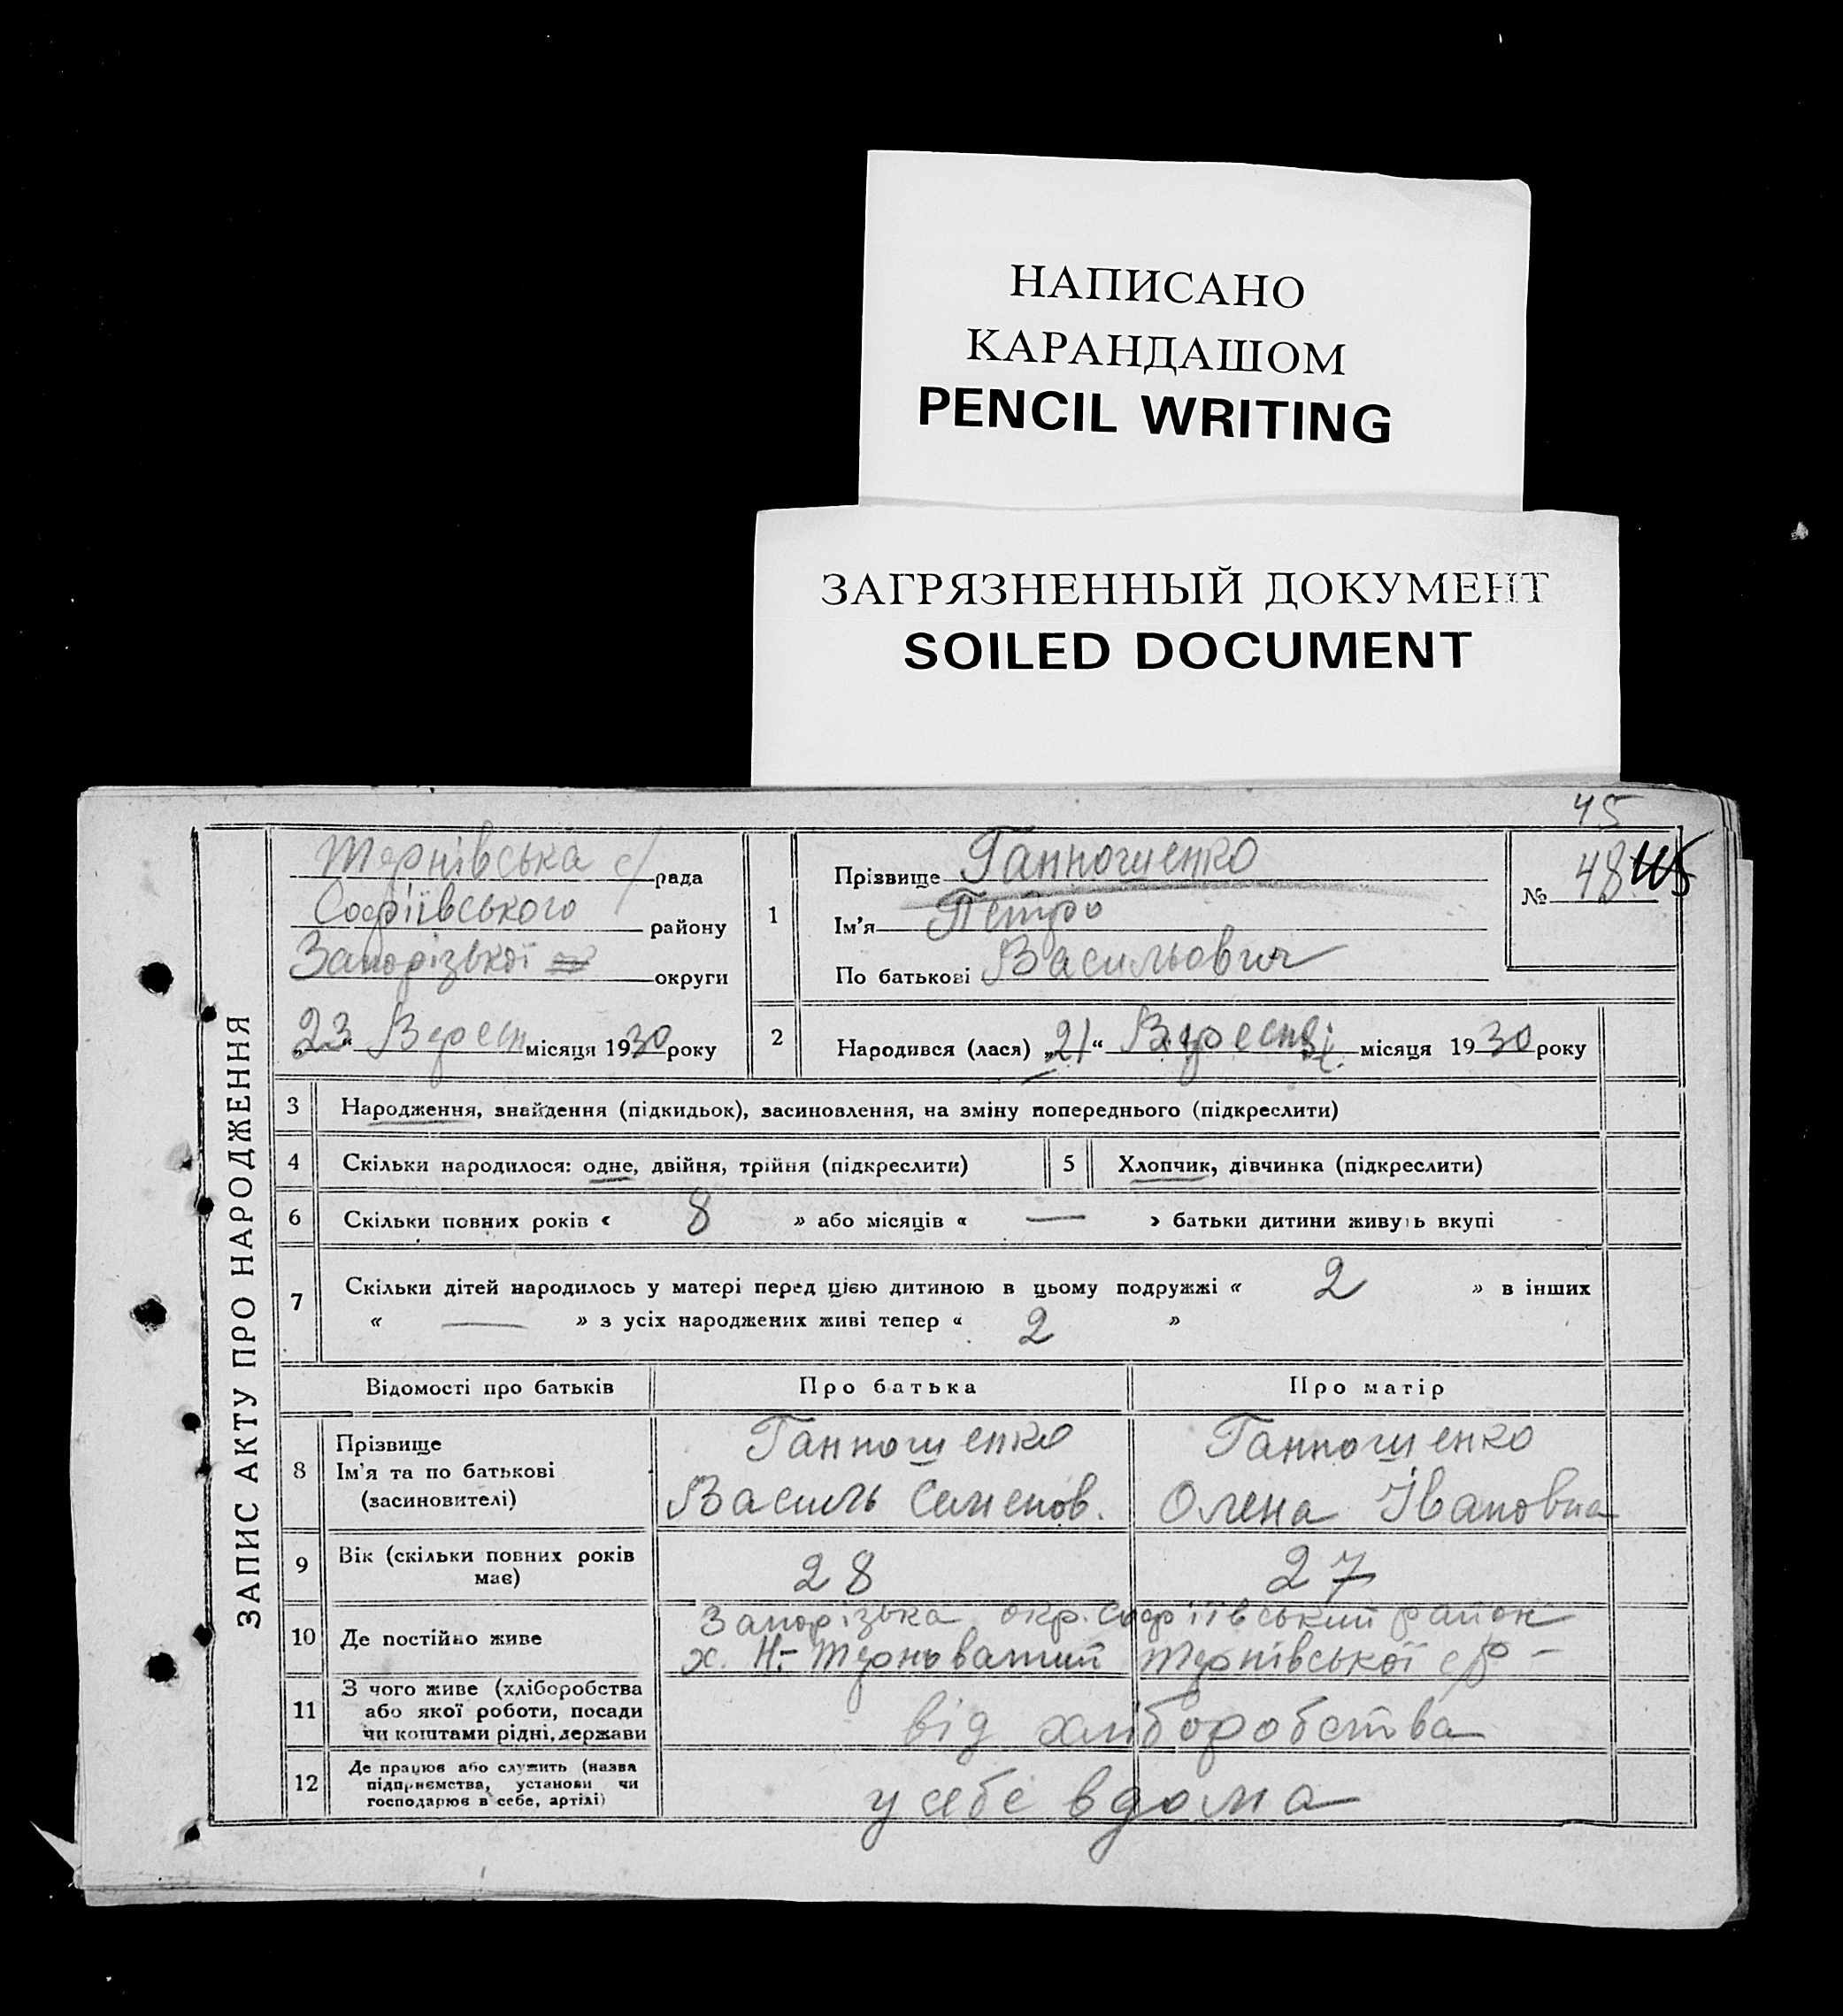 НАПИСАНО
КАРАНДАШОМ
PENCIL WRITING
ЗАГРЯЗНЕННЫЙ ДОКУМЕНТ
SOILED DOCUMENT
45
ЗАПИС АКТУ ПРО НАРОДЖЕННЯ
Тернівська с/рада
Софіївського району
Запорізької округи
„23“ Вересн місяця 1930 року
1
Прізвище Ганношенко
Ім'я Петро
По батькові Васильович
№ 48
2 Народився (лася) „21“ Вересня місяця 1930 року
3 Народження, знайдення (підкидьок), засиновлення, на зміну попереднього (підкреслити)
4 Скільки народилося: одне, двійня, трійня (підкреслити) 5 Хлопчик, дівчинка (підкреслити)
6 Скільки повних років « 8 » або місяців « — » батьки дитини живуть вкупі
7 Скільки дітей народилось у матері перед цією дитиною в цьому подружжі « 2 » в інших
« — » з усіх народжених живі тепер « 2 »
Відомості про батьків Про батька Про матір
8 Прізвище
Ім'я та по батькові
(засиновителі)
Ганношенко
Василь Семенов.
Ганношенко
Олена Івановна
9 Вік (скільки повних років
має)
28 27
10 Де постійно живе
Запорізька окр. Софіївський район
х. Н-Терноватий Тернівської с/р
11 З чого живе (хліборобства
або якої роботи, посади
чи коштами рідні, держави
від хліборобства
12 Де працює або служить (назва
підприємства, установи чи
господарює в себе, артілі)
у себе вдома